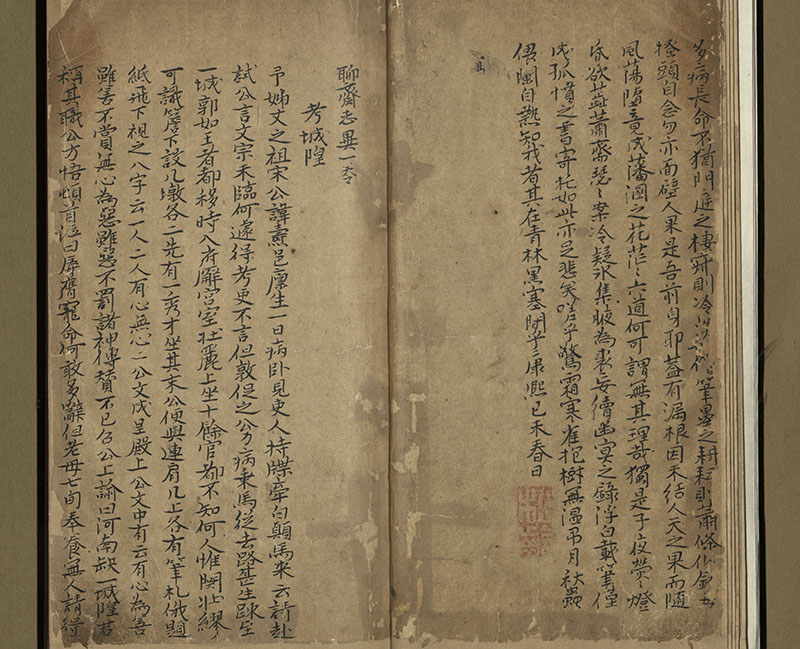 多病長命不猶門庭之棲寂則冷淡如僧筆墨之耕耘則蕭條似鉢每
搔頭自念勿亦面壁人果是吾前身耶蓋有漏根因未結人天之果而隨
風蕩墮竟成藩溷之花茫〻六道何可謂無其理哉獨是子夜熒〻燈
昏欲蕊蕭齋瑟〻案冷疑冰集腋為裘妄續幽冥之錄浮白載筆僅
成孤憤之書寄托如此亦足悲矣嗟乎驚霜寒雀抱樹無溫弔月秋蟲
偎闌自熱知我者其在青林黑塞間乎康熙己未春日
聊齋志異一卷
考城隍
予姊丈之祖宋公諱燾邑廩生一日病臥見吏人持牒牽白顛馬來云請赴
試公言文宗未臨何遽得考吏不言但敦促之公力病乘馬從去路甚生疎至
一城郭如王者都移時入府廨宮室壯麗上坐十餘官都不知何人惟関壯繆
可識簷下設几墩各二先有一秀才坐其末公便與連肩几上各有筆札俄題
紙飛下視之八字云一人二人有心無心二公文成呈殿上公文中有云有心為善
雖善不賞無心為惡雖惡不罰諸神傳贊不已召公上諭曰河南缺一城隍君
稱其職公方悟頓首泣曰辱膺寵命何敢多辭但老母七旬奉養無人請得